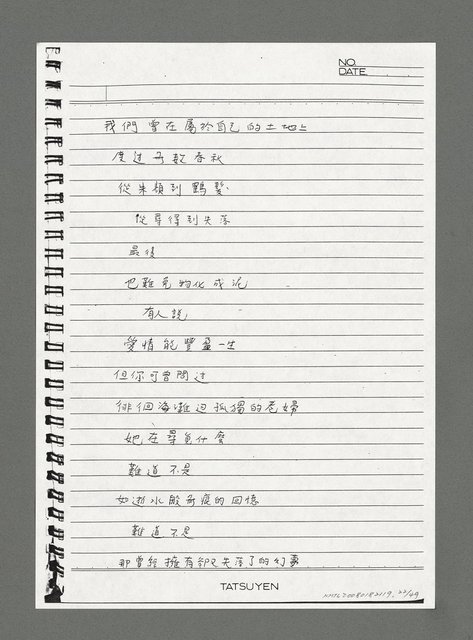 NO.
DATE
我們曾在屬於自己的土地上
度過無數春秋
從朱顏到鶴髮
從尋得到失落
最後
也難免物化成泥
有人說
愛情能豐盈一生
但你可曾問過
徘徊海灘邊孤獨的老婦
她在尋覓什麼
難道不是
如逝水般無痕的回憶
難道不是
那曾經擁有卻又失落了的幻夢
TATSUYEN
NMTL20080182119. 22/49